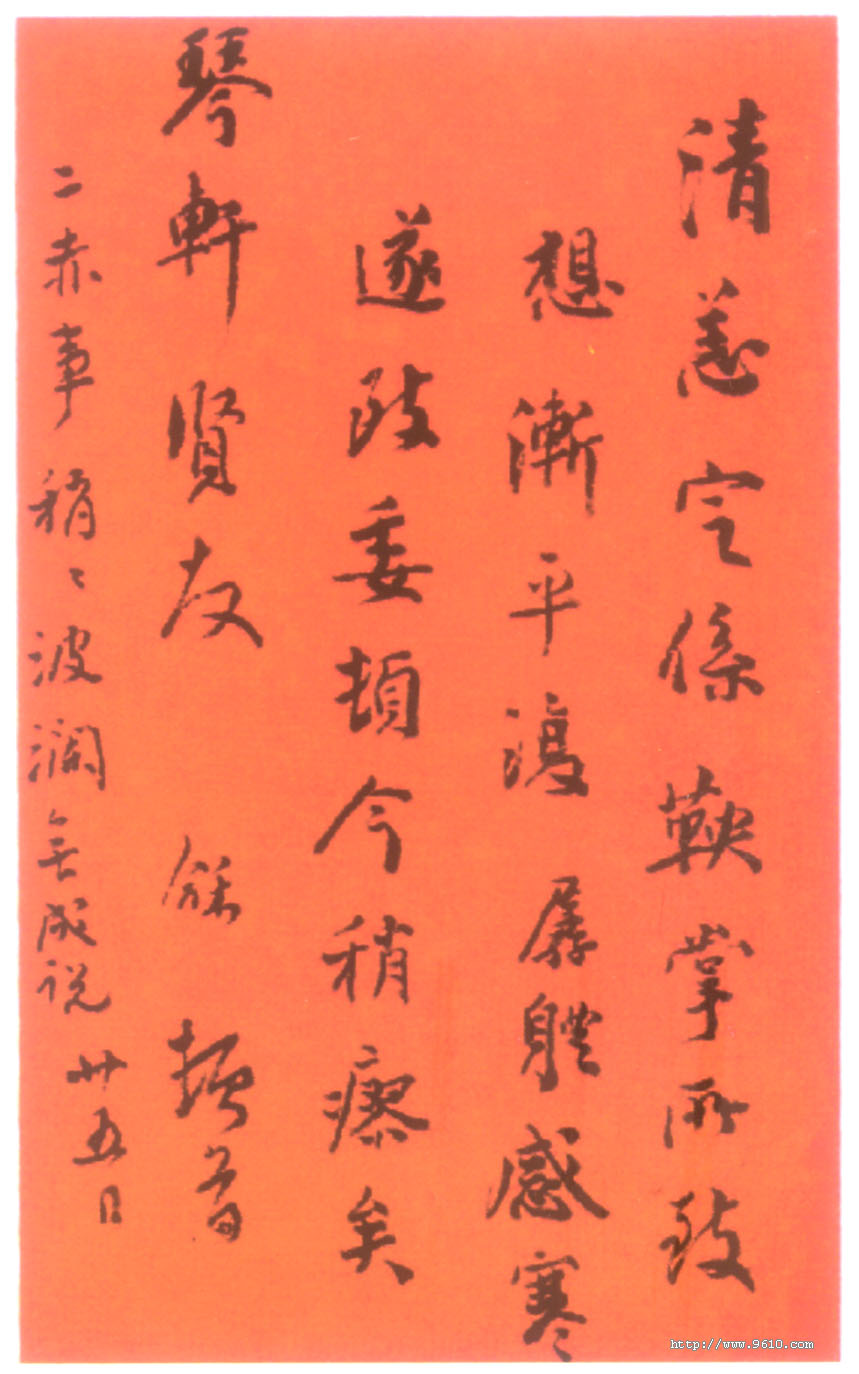 清恙定係鞅掌所致
想漸平復孱體感寒
遂致委頓今稍瘳矣
琴軒賢友 龢頓首
二赤事稍稍波瀾無成說
廿五日
http://www.9610.com